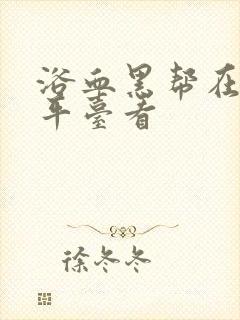 浴血黑帮在
平台看
徐冬冬